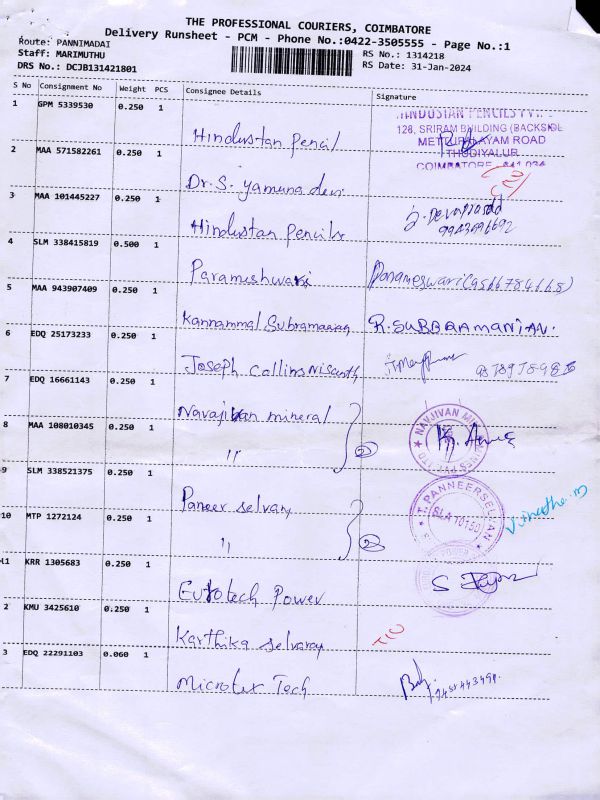 THE PROFESSIONAL COURIERS, COIMBATORE
Delivery Runsheet - PCM - Phone No.:0422-3505555 - Page No.:1
Route: PANNIMADAI
RS No.: 1314218
Staff: MARIMUTHU
RS Date: 31-Jan-2024
DRS No.: DCJB131421801
S No Consignment No Weight PCS Consignee Details Signature
1 GPM 5339530 0.250 1
Hindustan Pencil
HINDUSTAN PENCILS PVT.
128, SRIRAM BUILDING (BACKSIDE
METTUPALAYAM ROAD
THUDIYALUR
COIMBATORE - 641 034
2 MAA 571582261 0.250 1
Dr. S. Yamuna devi
3 MAA 101445227 0.250 1
Hindustan Pencils
4 SLM 338415819 0.500 1
Parameshwari
Parameswari (9566784668)
5 MAA 943907409 0.250 1
Kannammal Subramaniam
R. SUBRAMANIAN.
6 EDQ 25173233 0.250 1
Joseph Collins Nisanth
7 EDQ 16661143 0.250 1
Navajivan mineral
8 MAA 108010345 0.250 1
"
2
9 SLM 338521375 0.250 1
Paneer selvam
T. PANNEERSELVAN
10 MTP 1272124 0.250 1
"
2
11 KRR 1305683 0.250 1
Eurotech Power
2 KMU 3425610 0.250 1
Karthika selvaraj
3 EDQ 22291103 0.060 1
Microtex Tech